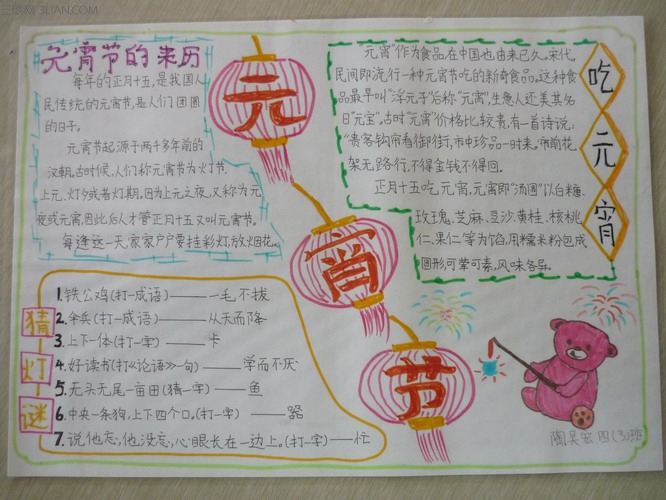 元宵节的来历
每年的正月十五,是我国人
民传统的元宵节,是人们团圆
的日子。
元宵节起源于两千多年前的
汉朝,古时候,人们称元宵节为灯节、
上元、灯夕或者灯期,因为上元之夜,又称为元
夜或元宵,因此后人才管正月十五又叫元宵节。
每逢这一天,家家户户要挂彩灯,放烟花。
元
宵
节
元宵"作为食品,在中国也由来已久。宋代,
民间即流行一种元宵节吃的新奇食品。这种食
品最早叫"浮元子"后称"元宵",生意人还美其名
曰"元宝"。古时"元宵"价格比较贵,有一首诗说:
"贵客钩帘看御街,市中珍品一时来。帘前花
架无路行,不得金钱不得回。
正月十五吃,元宵,元宵即"汤圆"以白糖、
玫瑰、芝麻、豆沙、黄桂、核桃
仁、果仁等为馅,用糯米粉包成
圆形,可荤可素,风味各异。
吃
元
宵
猜
灯
谜
1.铁公鸡(打一成语)——一毛不拔
2.伞兵(打一成语)——从天而降
3.上下一体(打一字)——卡
4.好读书(打《论语》一句)——学而不厌
5.无头无尾一亩田(猜一字)——鱼
6.中央一条狗,上下四个口。(打一字)——器
7.说他忘,他没忘,心眼长在一边上。(打一字)——忙
四(3)班